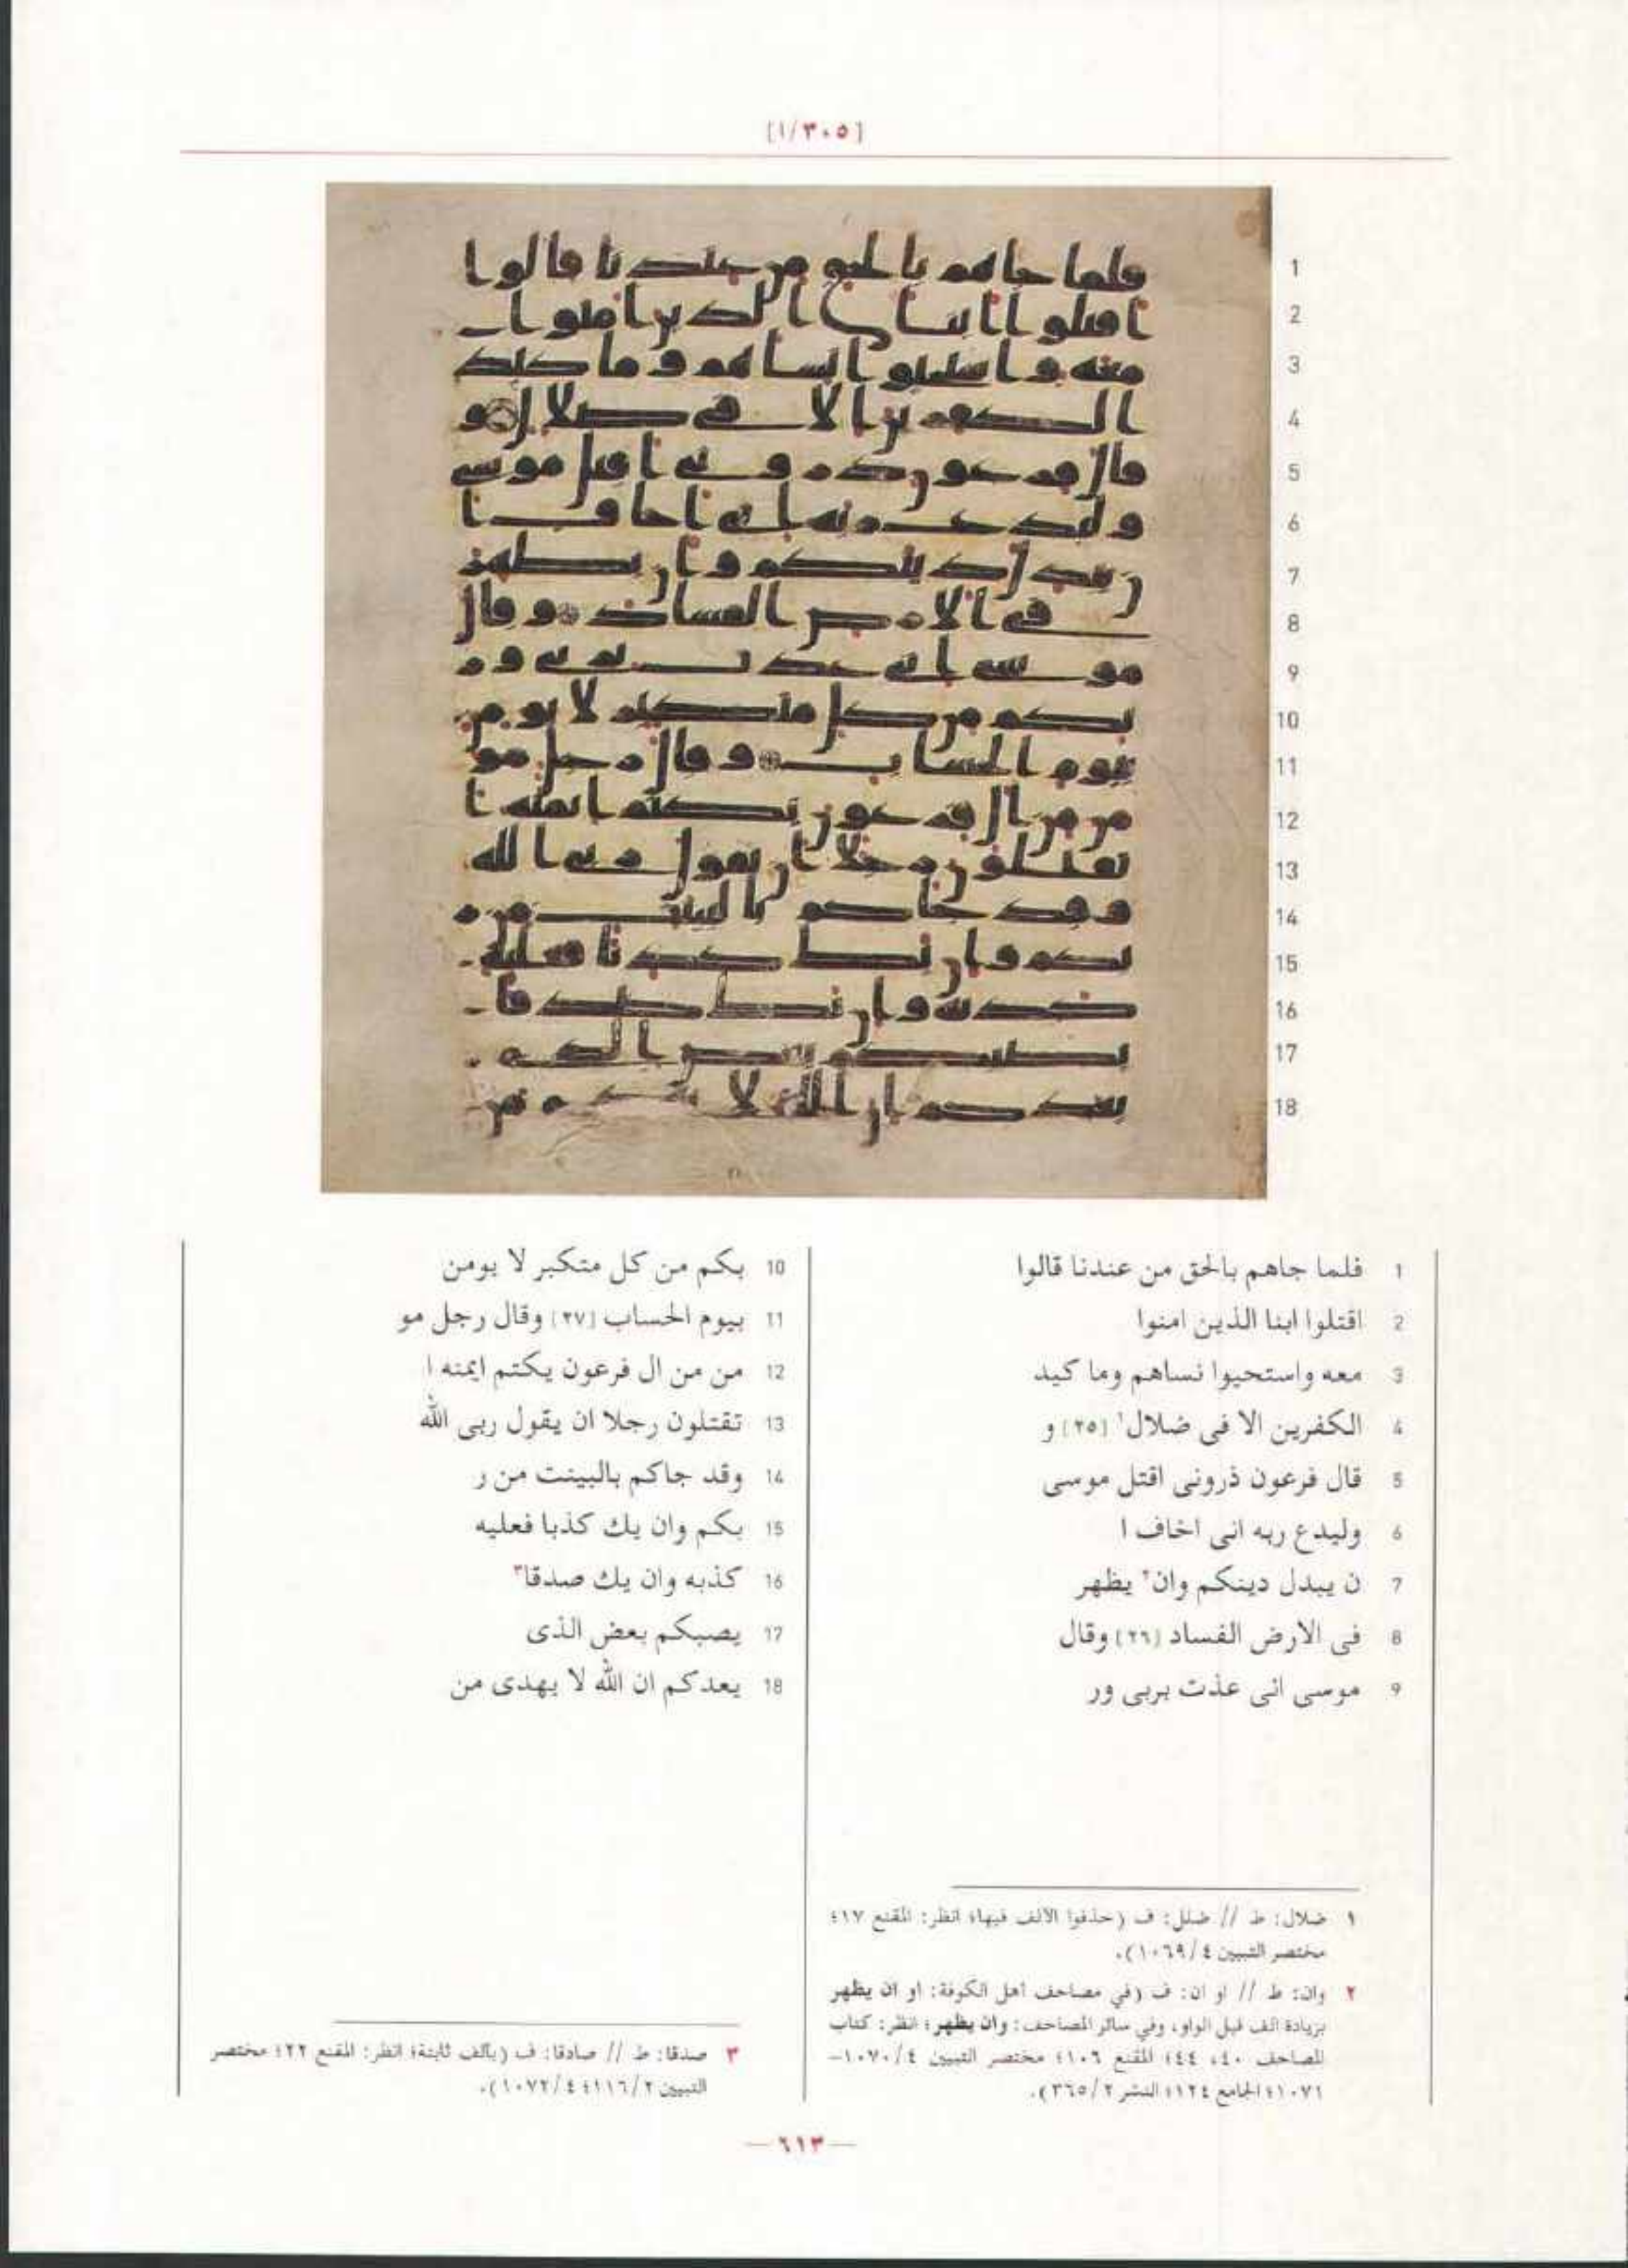 [١/٣٠٥]
1
2
3
4
5
6
7
8
9
10
11
12
13
14
15
16
17
18
1 فلما جاهم بالحق من عندنا قالوا
2 اقتلوا ابنا الذين امنوا
3 معه واستحيوا نساهم وما كيد
4 الكفرين الا فى ضلال١ [٢٥] و
5 قال فرعون ذرونى اقتل موسى
6 وليدع ربه انى اخاف ا
7 ن يبدل دينكم وان٢ يظهر
8 فى الارض الفساد [٢٦] وقال
9 موسى انى عذت بربى ور
10 بكم من كل متكبر لا يومن
11 بيوم الحساب [٢٧] وقال رجل مو
12 من من ال فرعون يكتم ايمنه ا
13 تقتلون رجلا ان يقول ربى الله
14 وقد جاكم بالبينت من ر
15 بكم وان يك كذبا فعليه
16 كذبه وان يك صدقا٣
17 يصبكم بعض الذى
18 يعدكم ان الله لا يهدى من
١ ضلال: ط // ضلل: ف (حذفوا الالف فيها؛ انظر: المقنع ١٧؛
مختصر التبيين ٤/١٠٦٩).
٢ وان: ط // او ان: ف (في مصاحف أهل الكوفة: او ان يظهر
بزيادة الف قبل الواو، وفي سائر المصاحف: وان يظهر؛ انظر: كتاب
المصاحف ٤٠، ٤٤؛ المقنع ١٠٦؛ مختصر التبيين ٤/١٠٧٠–
١٠٧١؛ الجامع ١٢٤؛ النشر ٢/٣٦٥).
٣ صدقا: ط // صادقا: ف (بألف ثابتة؛ انظر: المقنع ٢٢؛ مختصر
التبيين ٢/١١٦؛ ٤/١٠٧٢).
—٦١٣—